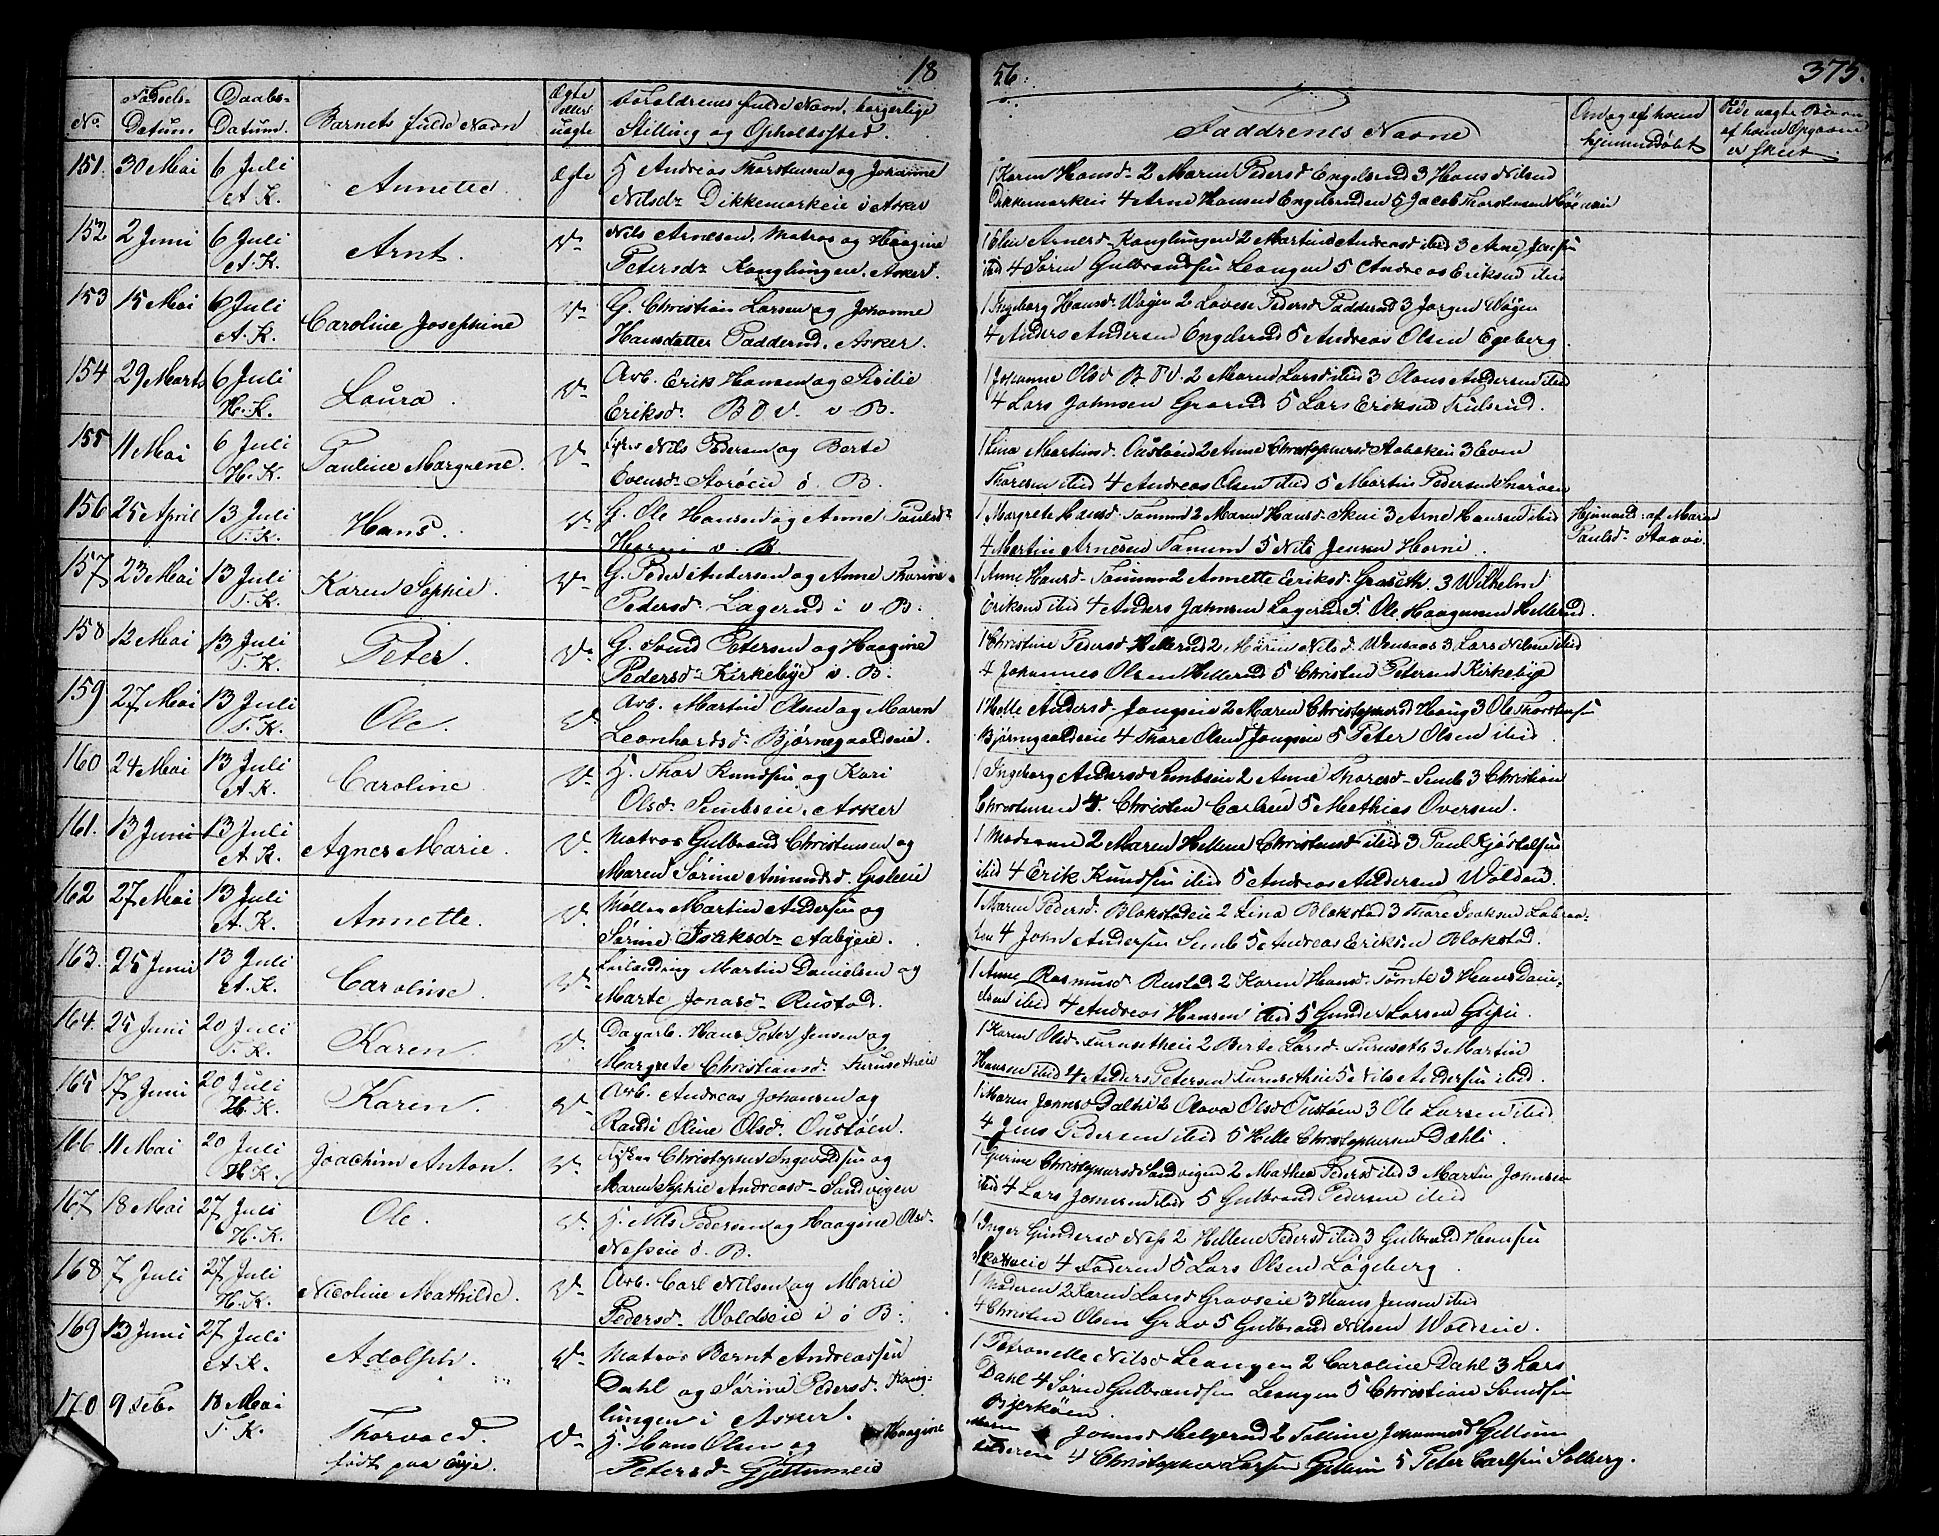 18 56. 375.
No. Fødsels-Datum. Daabs-Datum. Barnets fulde Navn Ægte eller uægte Forældrenes fulde Navn, borgerlige Stilling og Opholdssted. Faddrenes Navne
151. 30 Mai 6 Juli A. K. Annette. Ægte H. Andreas Thorstensen og Johanne
Nilsdr Dikkemarkeie i Asker
1 Karen Hansd. 2 Maren Pedersd Engelsrud 3 Hans Nilsen
Dikkemarkeie 4 Arne Hansen Engelsruden 5 Jacob Thorstensen
152 2 Juni 6 Juli A. K. Arnt. Do Nils Arnesen, Matros og Haagine
Petersdr Konglungen, Asker.
1 Elen Arnesd. Konglungen 2 Martine Andreasd ibid 3 Arne Jensen
ibid 4 Søren Gulbrandsen Leangen 5 Andreas Eriksen ibid
153 15 Mai 6 Juli A. K. Caroline Josephine Do G. Christian Larsen og Johanne
Hansdatter Padderud, Asker.
1 Ingeborg Hansd. Wøyen 2 Lovise Pedersd Padderud 3 Jørgen Wøyen
4 Anders Andersen Engelsrud 5 Andreas Olsen Egeberg.
154 29 Marts 6 Juli H. K. Laura. Do Arb. Erik Hansen og Sisilie
Eriksd. B. V. v. B.
1 Johanne Olsd 2 Maren Larsd ibid 3 Olaus Andersen ibid
4 Lars Johnsen Grorud 5 Lars Eriksen Trulsrud.
155 11 Mai 6 Juli H. K. Pauline Margrene. Do Nils Pedersen og Berte
Evensd. Storøen ø. B.
1 Lina Martinsd. Oustøen 2 Anne Christophersd Stabekeie 3 Even
Thoresen ibid 4 Andreas Olsen ibid 5 Martin Pedersen Snarøen
156 25 April 13 Juli T. K. Hans. Do G. Ole Hansen og Anne Paulsdr
Horni v. B
1 Margrete Hansd. Tanum 2 Maren Hansd. Skui 3 Arne Hansen ibid
4 Martin Arnesen Tanum 5 Nils Jensen Horni.
Hjemmed. af Maren
Paulsd.
157 23 Mai 13 Juli T. K. Karen Sophie. Do G. Peder Andersen og Anne Thorine
Pedersd. Lagerud i v B.
1 Anne Hansd. Tanum 2 Annette Eriksd. Graseth 3 Wilhelm
Eriksen ibid 4 Anders Johnsen Lagerud 5 Ole Haagensen Hellerud.
158 12 Mai 13 Juli T. K. Peter. Do G. Svend Petersen og Haagine
Pedersd. Kirkebye v. B.
1 Christine Pedersd Hellerud 2 Maren Nilsd. 3 Lars Nilsen ibid
4 Johannes Olsen Hellerud 5 Christen Petersen Kirkebye
159 27 Mai 13 Juli T. K. Ole. Do Arb. Martin Olsen og Maren
Leonhardsd. Bjørnegaardseie.
1 Helle Andersd Jongseie 2 Maren Christophersd Haug 3 Ole Thorstensen
Bjørnegaardseie 4 Thore Olsen Jongseie 5 Peter Olsen ibid.
160 24 Mai 13 Juli A. K. Caroline. Do H. Thor Knudsen og Kari
Olsd. Sembseie, Asker
1 Ingeborg Andersd Sembseie 2 Anne Thoresd. Semb 3 Christian
Christensen 4 Christen Carlsen 5 Mathias Oversen.
161. 13 Juni 13 Juli A. K. Agnes Marie. Do Matros Gulbrand Christensen og
Maren Sørine Amundsd. Gisleeie
1 Moderen 2 Maren Hellene Christensd ibid 3 Paul Kjøstelsen
ibid 4 Erik Knudsen ibid 5 Andreas Andersen Wolden.
162 27 Mai 13 Juli A. K. Annette. Do Møller Martin Andersen og
Sørine Isaksdr Aabyeie.
1 Maren Pedersd. Blokstadeie 2 Lina Blokstad 3 Thore Isaksen
4 John Andersen Semb 5 Andreas Eriksen Blokstad.
163. 25 Juni 13 Juli A. K. Caroline. Do Martin Danielsen og
Marte Jonasd. Rustad.
1 Anne Rasmusd Rustad 2 Karen Hansd. Tomte 3 Hans Dani-
elsen ibid 4 Andreas Hansen ibid 5 Gunder Larsen Gisleie.
164. 25 Juni 20 Juli T. K. Karen. Do Dagarb. Hans Peter Jensen og
Margrete Christiansd. Furusetheie
1 Karen Olsd. Furusetheie 2 Berte Larsd. Furuseth 3 Martin
Hansen ibid 4 Anders Petersen Furusetheie 5 Nils Andersen ibid.
165 17 Juni 20 Juli H. K. Karen. Do Arb. Andreas Johansen og
Randi Oline Olsd. Oustøen.
1 Maren Jonsd Dalhi 2 Olava Olsd Oustøen 3 Ole Larsen ibid
4 Jens Pedersen ibid 5 Helle Christophersen Dæhli.
166 11 Mai 20 Juli H. K. Joachim Anton. Do Fisker Christopher Ingevoldsen og
Maren Sophie Andreasd. Sandvigen
1 Gurine Christophersd. Sandvigen 2 Mathea Pedersd ibid 3 Martin Johnsen
ibid 4 Lars Jonsen ibid 5 Gulbrand Pedersen ibid
167. 18 Mai 27 Juli H. K. Ole. Do H. Nils Pedersen og Haagine Olsd.
Nesseie ø. B.
1 Inger Gundersd Ness 2 Hellene Pedersd ibid 3 Gulbrand Hansen
Skotteeie 4 Faderen 5 Lars Olsen Løgeberg.
168 7 Juli 27 Juli H. K. Nicoline Mathilde. Do Arb. Carl Nilsen og Marie
Pedersd. Woldseie i ø B.
1 Moderen 2 Karen Larsd Gravseie 3 Hans Jensen ibid
4 Christen Olsen Grav 5 Gulbrand Nilsen Woldseie.
169 13 Juni 27 Juli A. K. Adolph. Do Matros Bernt Andreassen
Dahl og Sørine Pedersd. Kong-
lungen i Asker.
1 Petronelle Nilsd Leangen 2 Caroline Dahl 3 Lars
Dahl 4 Søren Gulbrandsen Leangen 5 Christian Svendsen
Bjerkøen.
170 9 Febr 18 Mai T. K. Thorvald. født paa Eye. Do H. Hans Olsen og Haagine
Petersd. Gjettumeie
Jonsd Helgerud 2 Talline Johannesd Gjettum
4 Christopher Larsen Gjettum 5 Peter Carlsen Solberg.